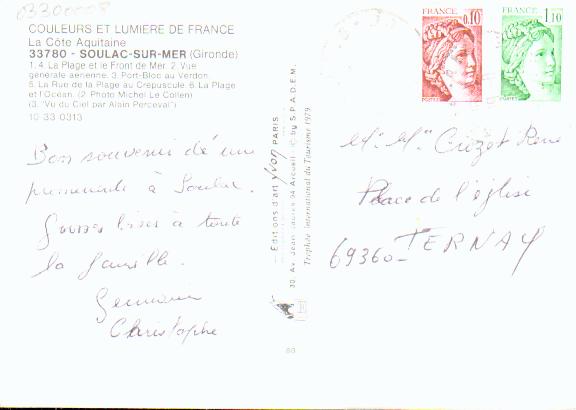 03300008
COULEURS ET LUMIERE DE FRANCE
La Côte Aquitaine
33780 - SOULAC-SUR-MER (Gironde)
1. 4. La Plage et le Front de Mer. 2. Vue
générale aérienne. 3. Port-Bloc au Verdon.
5. La Rue de la Plage au Crépuscule. 6. La Plage
et l'Océan. (2. Photo Michel Le Collen)
(3. "Vu du Ciel par Alain Perceval")
10 33 0313
Bon souvenir de une
promenade à Soulac.
Grosses bises à toute
la famille.
Germain
Christophe
Editions d'art yvon PARIS
30, Av. Jean Jaurès 94 Arcueil © by S.P.A.D.E.M.
Trophée International du Tourisme 1979
86
FRANCE
0,10
POSTES
FRANCE
1,10
POSTES
Mr Mme Cuzot René
Place de l'église
69360 - TERNAY